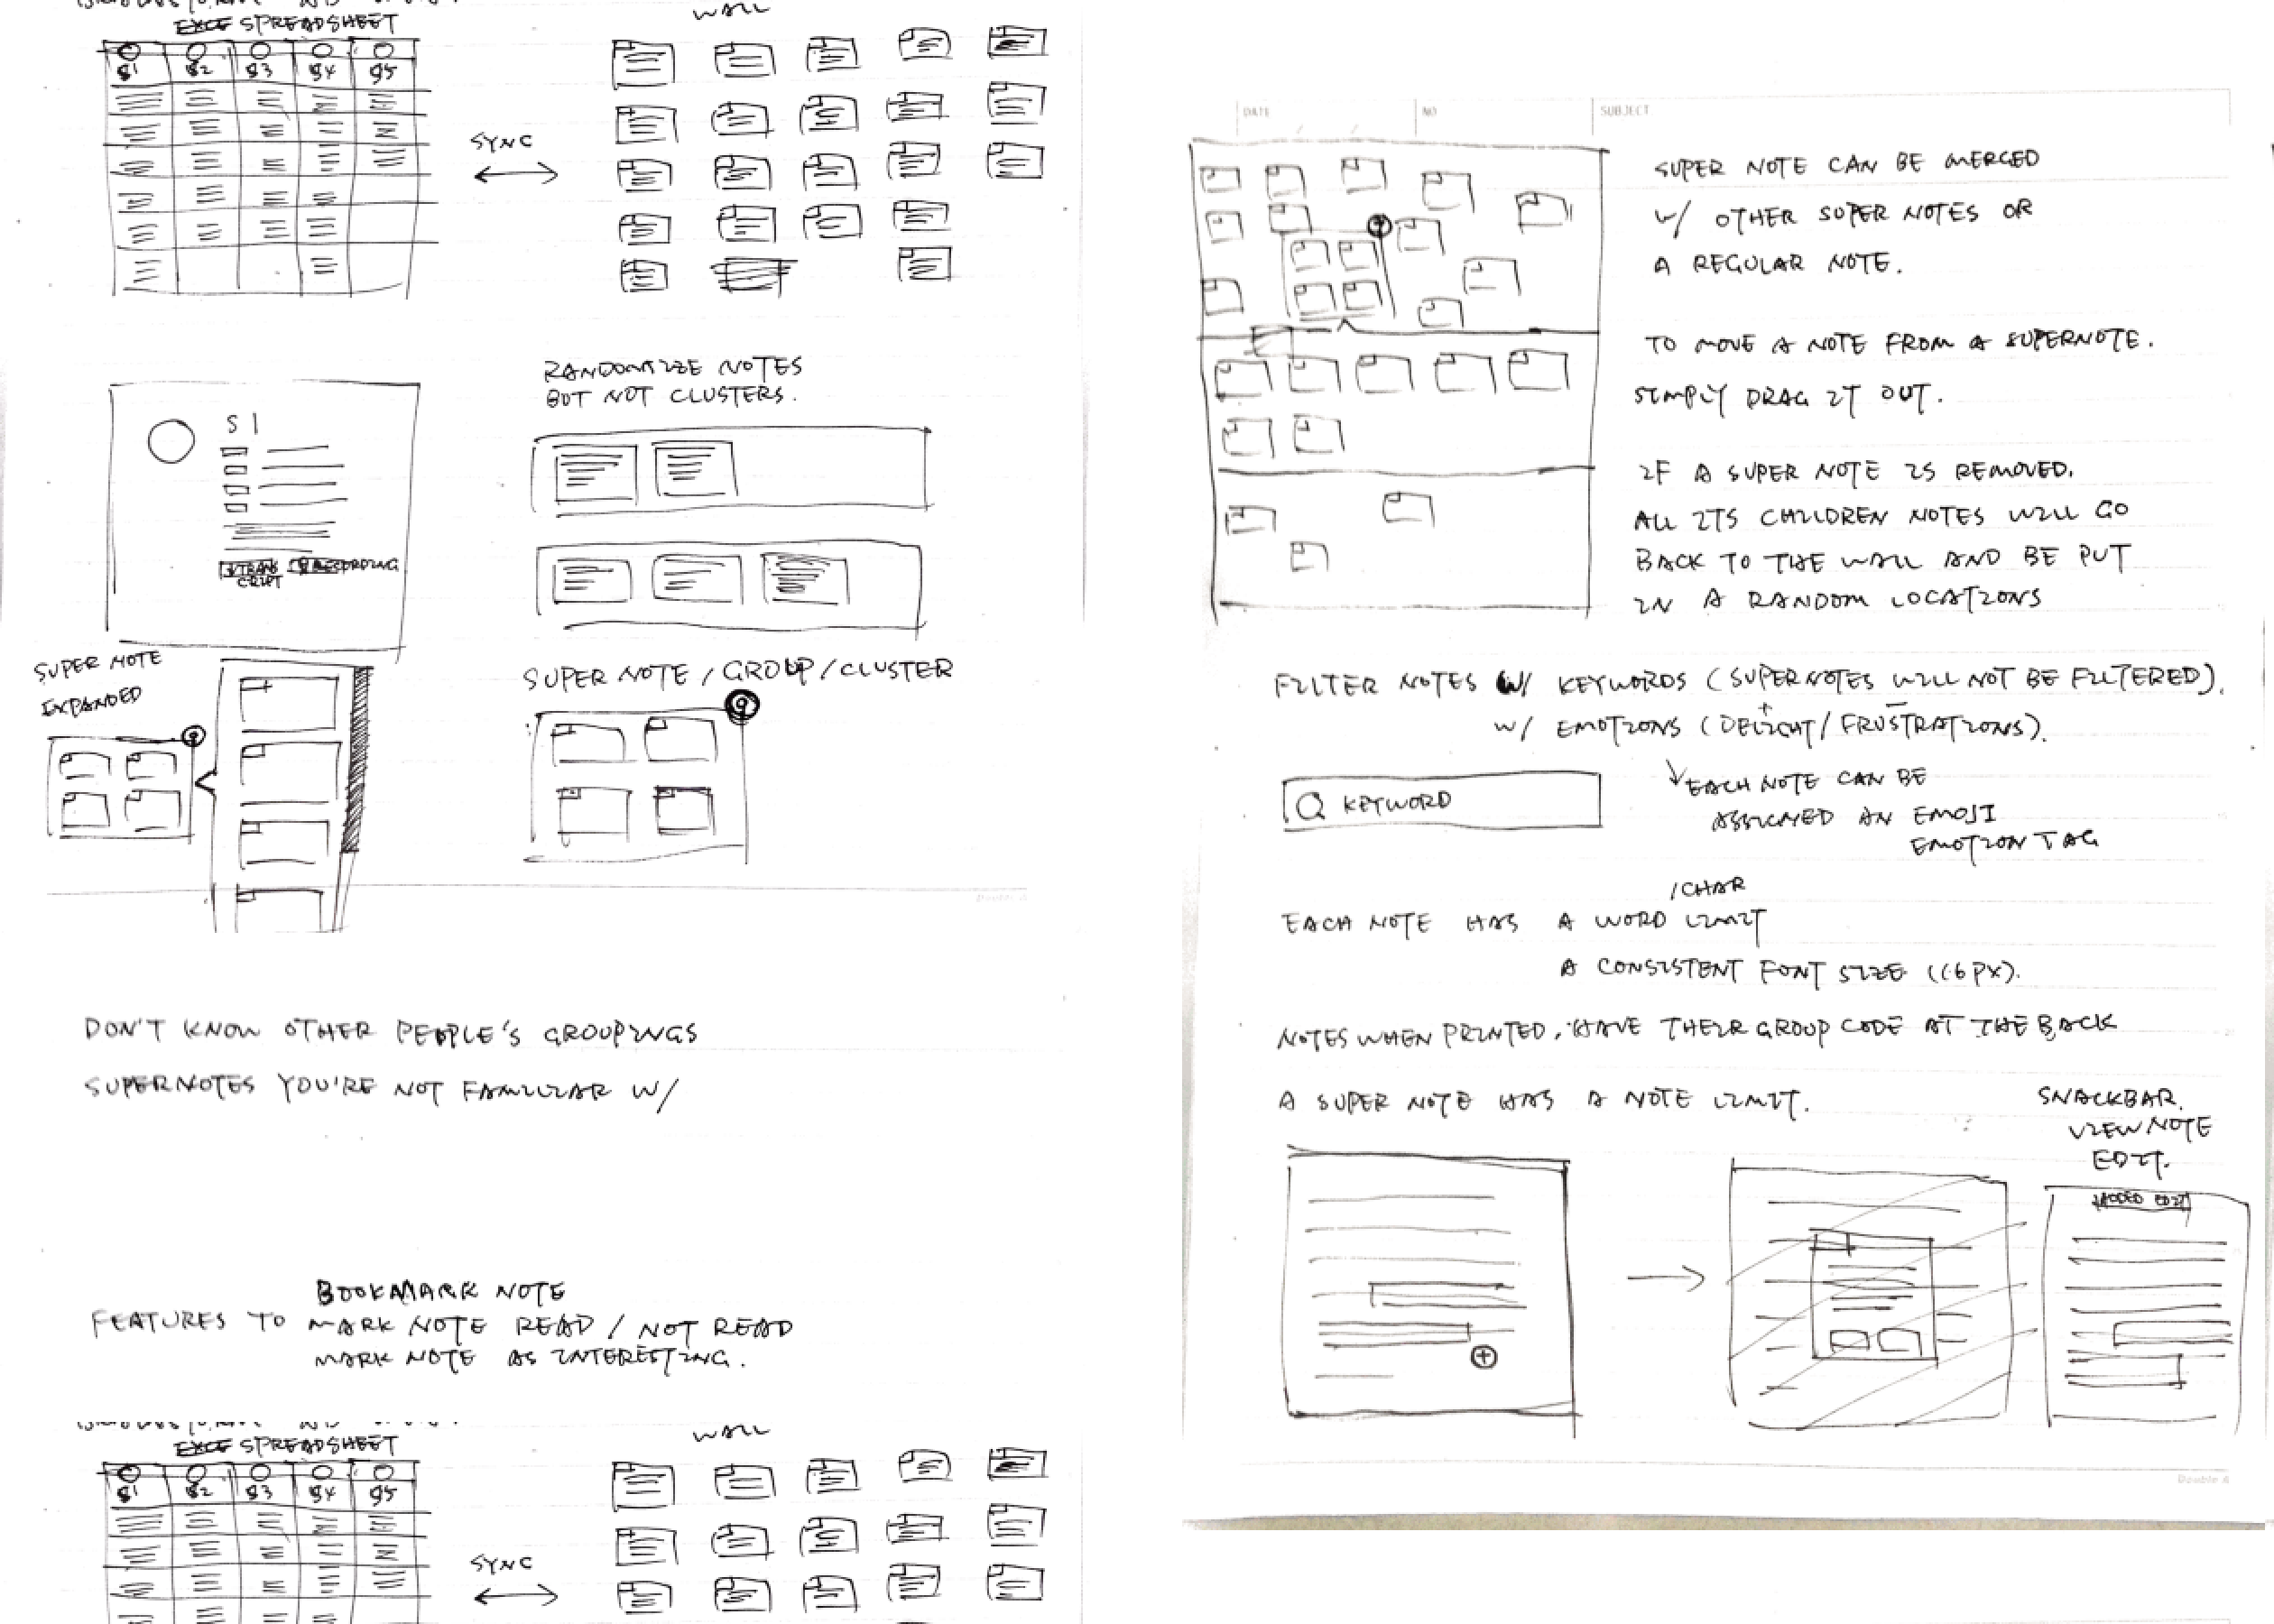 SPREADSHEET
S1 S2 S3 S4 S5
SYNC
WALL
RANDOMIZE NOTES
BUT NOT CLUSTERS.
S1
TRANSCRIPT
RECORDING
SUPER NOTE
EXPANDED
9
SUPER NOTE / GROUP / CLUSTER
9
DON'T KNOW OTHER PEOPLE'S GROUPINGS
SUPERNOTES YOU'RE NOT FAMILIAR W/
BOOKMARK NOTE
FEATURES TO MARK NOTE READ / NOT READ
MARK NOTE AS INTERESTING.
SPREADSHEET
S1 S2 S3 S4 S5
SYNC
WALL
DATE
NO
SUBJECT
SUPER NOTE CAN BE MERGED
W/ OTHER SUPER NOTES OR
A REGULAR NOTE.
TO MOVE A NOTE FROM A SUPERNOTE.
SIMPLY DRAG IT OUT.
IF A SUPER NOTE IS REMOVED.
ALL ITS CHILDREN NOTES WILL GO
BACK TO THE WALL AND BE PUT
IN A RANDOM LOCATIONS
FILTER NOTES W/ KEYWORDS (SUPERNOTES WILL NOT BE FILTERED).
+ −
W/ EMOTIONS (DELIGHT / FRUSTRATIONS).
KEYWORD
EACH NOTE CAN BE
ASSIGNED AN EMOJI
EMOTION TAG
/CHAR
EACH NOTE HAS A WORD LIMIT
A CONSISTENT FONT SIZE (16PX).
NOTES WHEN PRINTED, HAVE THEIR GROUP CODE AT THE BACK
A SUPER NOTE HAS A NOTE LIMIT.
SNACKBAR.
VIEW NOTE
EDIT.
ADDED EDIT
Double A
Double A